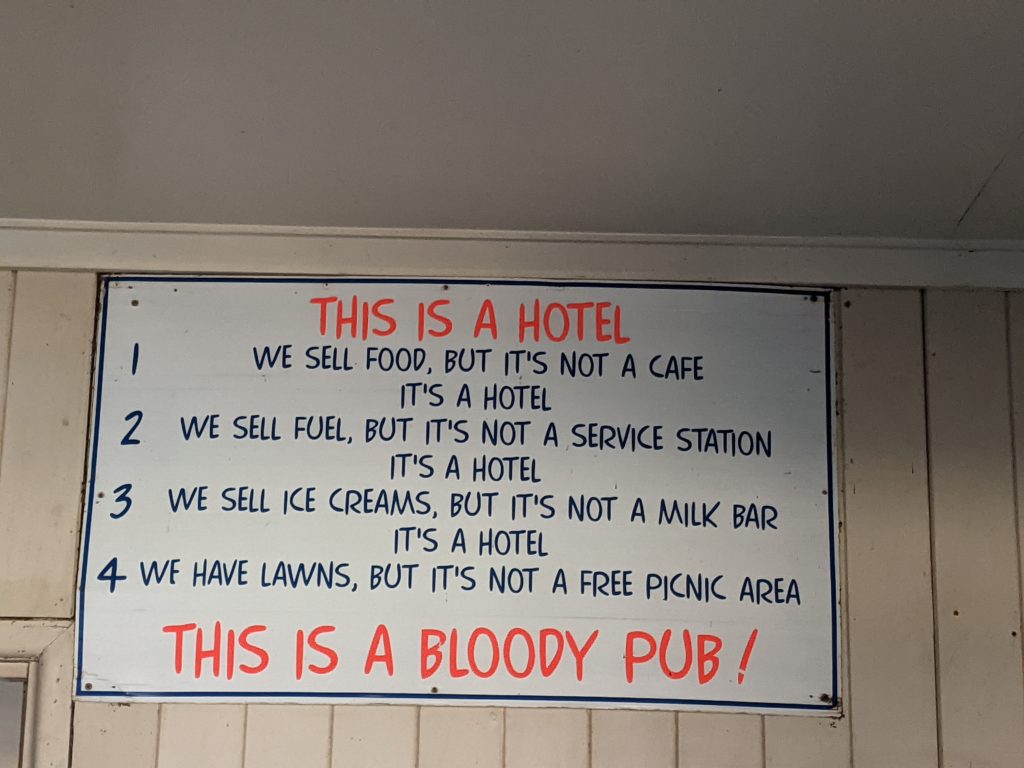 THIS IS A HOTEL
1 WE SELL FOOD, BUT IT'S NOT A CAFE
IT'S A HOTEL
2 WE SELL FUEL, BUT IT'S NOT A SERVICE STATION
IT'S A HOTEL
3 WE SELL ICE CREAMS, BUT IT'S NOT A MILK BAR
IT'S A HOTEL
4 WE HAVE LAWNS, BUT IT'S NOT A FREE PICNIC AREA
THIS IS A BLOODY PUB!